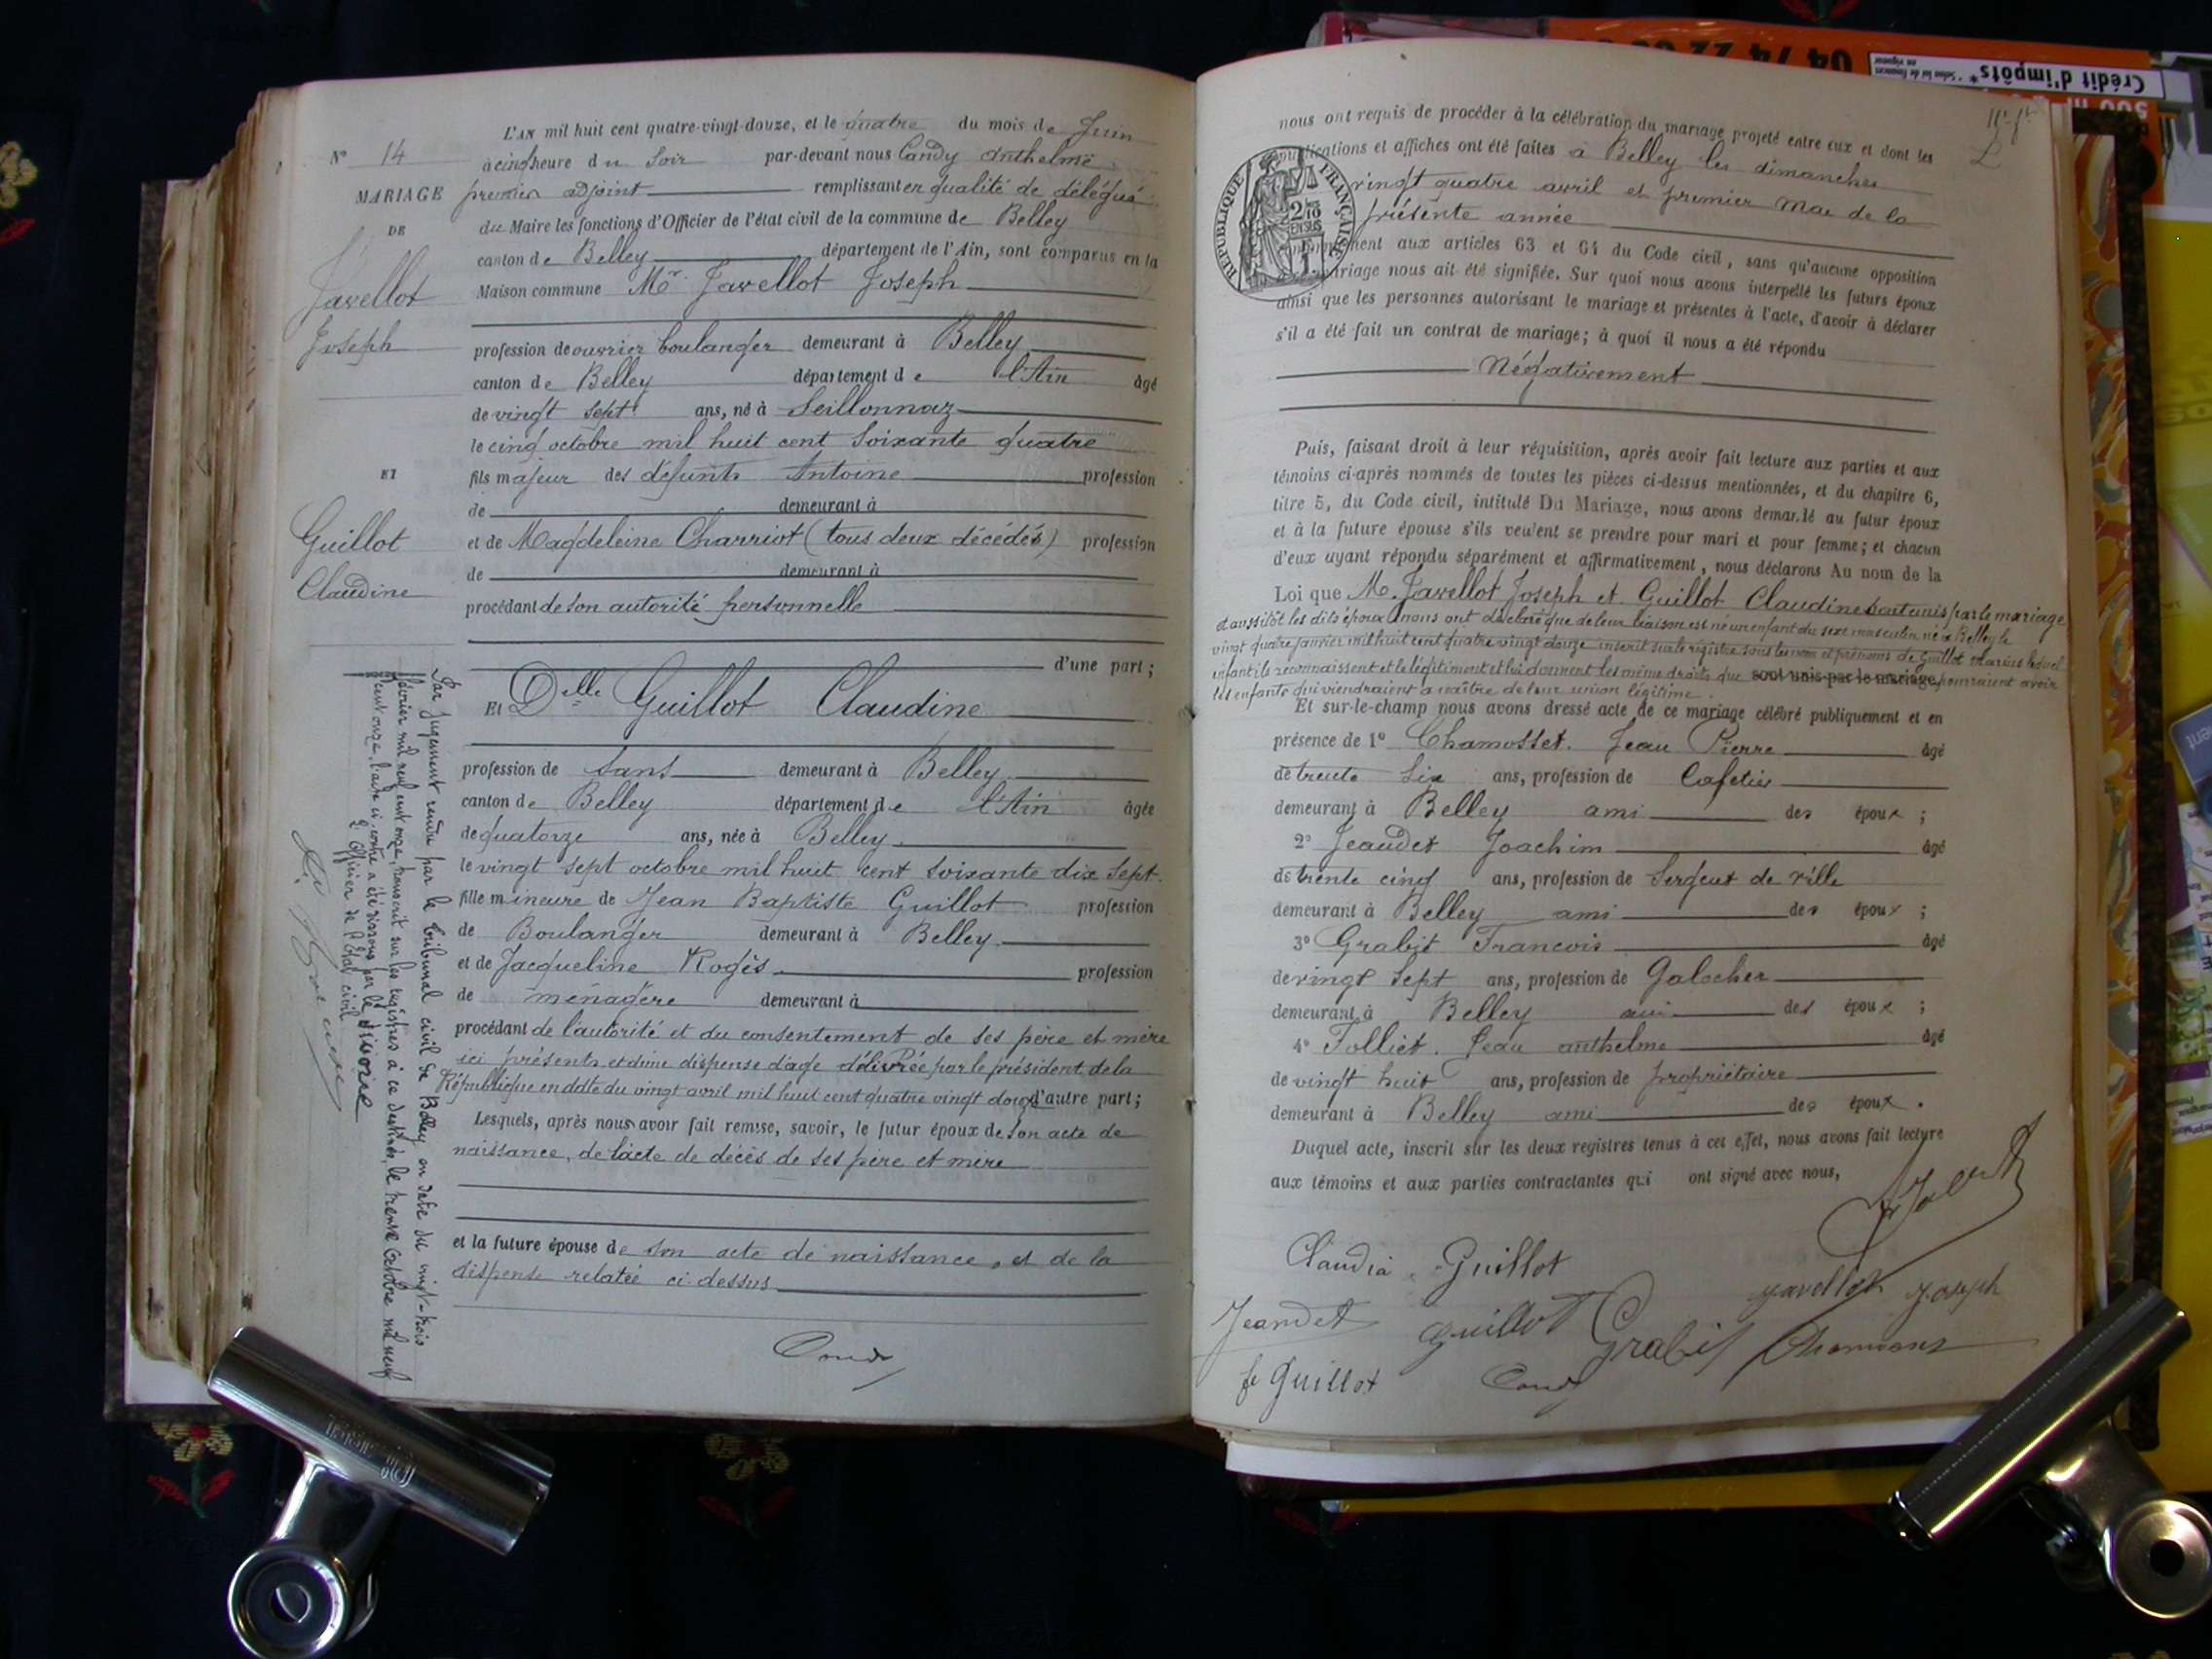 L'AN mil huit cent quatre-vingt-douze, et le quatre du mois de Juin
à cinq heure du Soir par-devant nous Candy Anthelme
premier adjoint remplissant en qualité de délégué
du Maire les fonctions d'Officier de l'état civil de la commune de Belley
canton de Belley département de l'Ain, sont comparus en la
Maison commune Mr. Javellot Joseph
profession de ouvrier boulanger demeurant à Belley
canton de Belley département de l'Ain âgé
de vingt sept ans, né à Seillonnaz
le cinq octobre mil huit cent soixante quatre
fils majeur des défunts Antoine profession
de demeurant à
et de Magdeleine Charriot (tous deux décédés) profession
de demeurant à
procédant de son autorité personnelle
d'une part;
Et Delle Guillot Claudine
profession de sans demeurant à Belley
canton de Belley département de l'Ain âgée
de quatorze ans, née à Belley
le vingt sept octobre mil huit cent soixante dix sept.
fille mineure de Jean Baptiste Guillot profession
de Boulanger demeurant à Belley
et de Jacqueline Rogès profession
de ménagère demeurant à
procédant de l'autorité et du consentement de ses père et mère
ici présents et d'une dispense d'age délivrée par le président de la
République en date du vingt avril mil huit cent quatre vingt douze d'autre part;
Lesquels, après nous avoir fait remise, savoir, le futur époux de son acte de
naissance, de l'acte de décès de ses père et mère
et la future épouse de son acte de naissance, et de la
dispense relatée ci-dessus
Candy
No 14
MARIAGE
DE
Javellot
Joseph
ET
Guillot
Claudine
Par jugement rendu par le tribunal civil de Belley en date du vingt-trois
février mil neuf cent onze, transcrit sur les registres à ce destinés le trente Octobre mil neuf
cent onze, l'acte ci-contre a été dissous par le divorce
L'Officier de l'Etat civil
nous ont requis de procéder à la célébration du mariage projeté entre eux et dont les
publications et affiches ont été faites à Belley les dimanches
vingt quatre avril et premier Mai de la
présente année
RÉPUBLIQUE FRANÇAISE
2/10 EN SUS
conformément aux articles 63 et 64 du Code civil, sans qu'aucune opposition
au mariage nous ait été signifiée. Sur quoi nous avons interpellé les futurs époux
ainsi que les personnes autorisant le mariage et présentes à l'acte, d'avoir à déclarer
s'il a été fait un contrat de mariage; à quoi il nous a été répondu
Négativement
Puis, faisant droit à leur réquisition, après avoir fait lecture aux parties et aux
témoins ci-après nommés de toutes les pièces ci-dessus mentionnées, et du chapitre 6,
titre 5, du Code civil, intitulé Du Mariage, nous avons demandé au futur époux
et à la future épouse s'ils veulent se prendre pour mari et pour femme; et chacun
d'eux ayant répondu séparément et affirmativement, nous déclarons Au nom de la
Loi que M. Javellot Joseph et Guillot Claudine sont unis par le mariage
et aussitôt les dits époux nous ont déclaré que de leur liaison est né un enfant du sexe masculin né à Belley le
vingt quatre janvier mil huit cent quatre vingt douze inscrit sur le registre sous les nom et prénoms de Guillot Marius lequel
enfant ils reconnaissent et le légitiment et lui donnent les même droits que sont unis par le mariage, pourraient avoir
les enfants qui viendraient à naître de leur union légitime.
Et sur-le-champ nous avons dressé acte de ce mariage célébré publiquement et en
présence de 1° Chamosset. Jean Pierre âgé
de trente six ans, profession de Cafetier
demeurant à Belley ami des époux ;
2° Jeandet Joachim âgé
de trente cinq ans, profession de Sergent de ville
demeurant à Belley ami des époux ;
3° Grabit Francois âgé
de vingt sept ans, profession de Galocher
demeurant à Belley ami des époux ;
4° Folliet. Jean anthelme âgé
de vingt huit ans, profession de propriétaire
demeurant à Belley ami des époux .
Duquel acte, inscrit sur les deux registres tenus à cet effet, nous avons fait lecture
aux témoins et aux parties contractantes qui ont signé avec nous,
Claudia Guillot
Javellot Joseph
Jeandet Guillot Grabit
fe Guillot Candy
04 74 22
Crédit d'impôts*
* Selon loi de finances
en vigueur